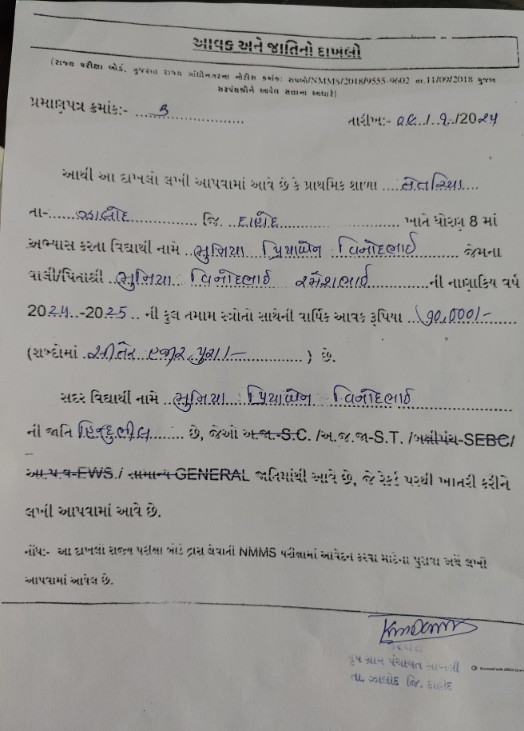 આવક અને જાતિનો દાખલો
(રાજ્ય પરીક્ષા બોર્ડ, ગુજરાત રાજ્ય ગાંધીનગરના નોટીસ ક્રમાંક: રાપબો/NMMS/2018/9555-9602 તા.11/09/2018 મુજબ
સરપંચશ્રીને આવેલ સત્તાના આધારે)
પ્રમાણપત્ર ક્રમાંક:- 3
તારીખ:- /2024
આથી આ દાખલો લખી આપવામાં આવે છે કે પ્રાથમિક શાળા
તા- ઝાલોદ જિ. દાહોદ ખાતે ધોરણ 8 માં
અભ્યાસ કરતા વિદ્યાર્થી નામે ભુનિયા પ્રિયાબેન વિનોદભાઈ જેમના
વાલી/પિતાશ્રી ભુનિયા વિનોદભાઈ રમેશભાઈ ની નાણાકિય વર્ષ
2024-2025 ની કુલ તમામ સ્ત્રોતો સાથેની વાર્ષિક આવક રૂપિયા 70,000/-
(શબ્દોમાં સીતેર હજાર પુરા/- ) છે.
સદર વિદ્યાર્થી નામે ભુનિયા પ્રિયાબેન વિનોદભાઈ
ની જાતિ હિન્દુ ભીલ છે, જેઓ અ.જા.-S.C. /અ.જ.જા-S.T. /બક્ષીપંચ-SEBC/
આ.પ.વ-EWS./ સામાન્ય GENERAL જાતિમાંથી આવે છે, જે રેકર્ડ પરથી ખાતરી કરીને
લખી આપવામાં આવે છે.
નોંધ:- આ દાખલો રાજ્ય પરીક્ષા બોર્ડ દ્વારા લેવાતી NMMS પરીક્ષામાં આવેદન કરવા માટેના પુરાવા અર્થે લખી
આપવામાં આવેલ છે.
સરપંચ
ગ્રુપ ગ્રામ પંચાયત
તા. ઝાલોદ જિ. દાહોદ